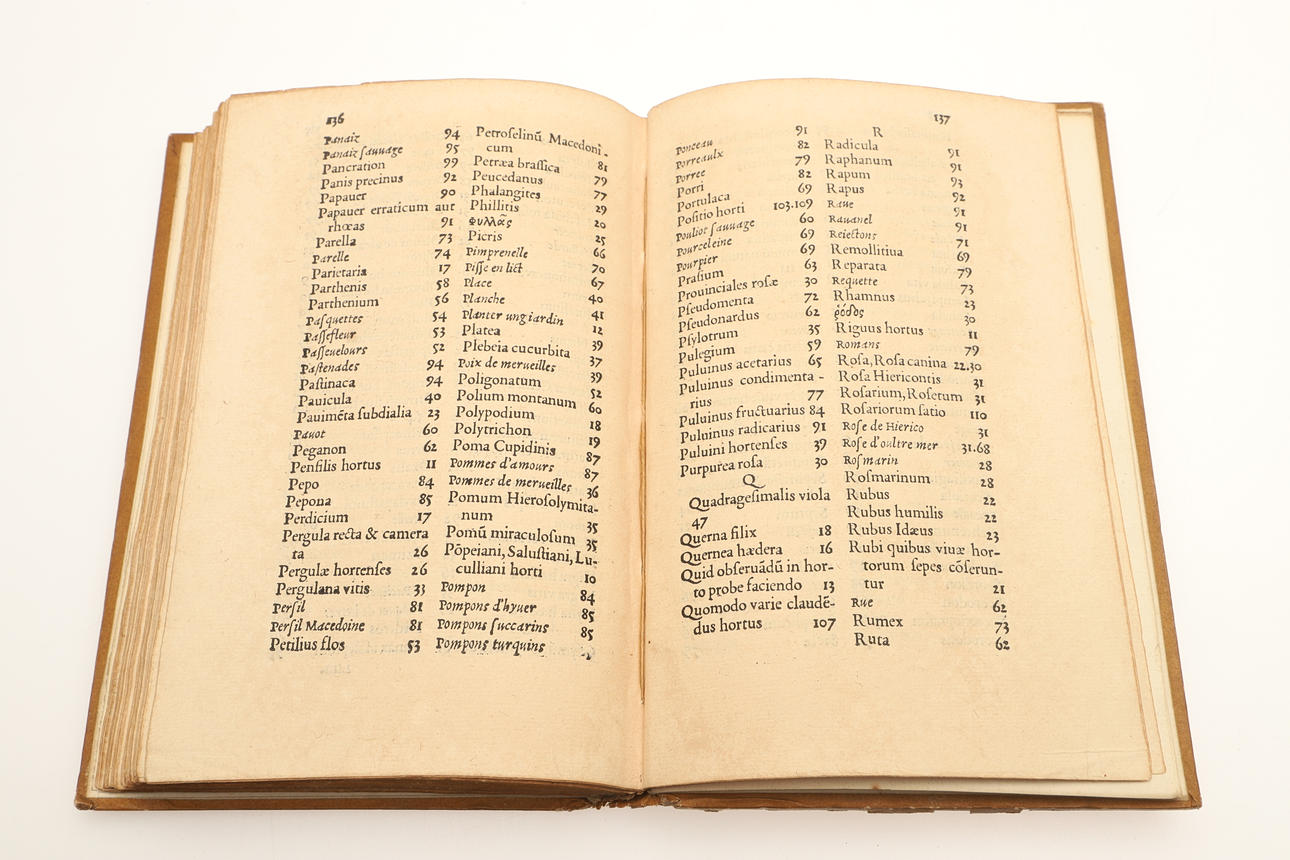 136
Panaiz 94
Panaiz ſauuage 95
Pancration 99
Panis precinus 92
Papauer 90
Papauer erraticum aut
rhœas 91
Parella 73
Parelle 74
Parietaria 17
Parthenis 58
Parthenium 56
Paſquettes 54
Paſſefleur 53
Paſſeuelours 52
Paſtenades 94
Paſtinaca 94
Pauicula 40
Pauimēta ſubdialia 23
Pauot 60
Peganon 62
Penſilis hortus 11
Pepo 84
Pepona 85
Perdicium 17
Pergula recta & camera
ta 26
Pergulæ hortenſes 26
Pergulana vitis 33
Perſil 81
Perſil Macedoine 81
Petilius flos 53
Petroſelinū Macedoni-
cum 81
Petræa braſſica 79
Peucedanus 77
Phalangites 29
Phillitis 20
Φυλλὰς 25
Picris 66
Pimprenelle 70
Piſſe en lict 67
Place 40
Planche 41
Planter ung iardin 12
Platea 39
Plebeia cucurbita 37
Poix de merueilles 39
Poligonatum 52
Polium montanum 60
Polypodium 18
Polytrichon 19
Poma Cupidinis 87
Pommes d'amours 87
Pommes de merueilles 36
Pomum Hieroſolymita-
num 35
Pomū miraculoſum 35
Pōpeiani, Saluſtiani, Lu-
culliani horti 10
Pompon 84
Pompons d'hyuer 85
Pompons ſuccarins 85
Pompons turquins
137
Ponceau 91
Porreaulx 82
Porree 79
Porri 82
Portulaca 69
Poſitio horti 103.109
Pouliot ſauuage 60
Pourceleine 69
Pourpier 69
Praſium 63
Prouinciales roſæ 30
Pſeudomenta 72
Pſeudonardus 62
Pſylotrum 35
Pulegium 59
Puluinus acetarius 65
Puluinus condimenta-
rius 77
Puluinus fructuarius 84
Puluinus radicarius 91
Puluini hortenſes 39
Purpurea roſa 30
Q
Quadrageſimalis viola
47
Querna filix 18
Quernea hædera 16
Quid obſeruādū in hor-
to probe faciendo 13
Quomodo varie claudē-
dus hortus 107
R
Radicula 91
Raphanum 91
Rapum 93
Rapus 92
Raue 91
Rauanel 91
Reiectons 71
Remollitiua 69
Reparata 79
Requette 73
Rhamnus 23
ῥόδος 30
Riguus hortus 11
Romans 79
Roſa, Roſa canina 22.30
Roſa Hiericontis 31
Roſarium, Roſetum 31
Roſariorum ſatio 110
Roſe de Hierico 31
Roſe d'oultre mer 31.68
Roſmarin 28
Roſmarinum 28
Rubus 22
Rubus humilis 22
Rubus Idæus 23
Rubi quibus viuæ hor-
torum ſepes cōſerun-
tur 21
Rue 62
Rumex 73
Ruta 62